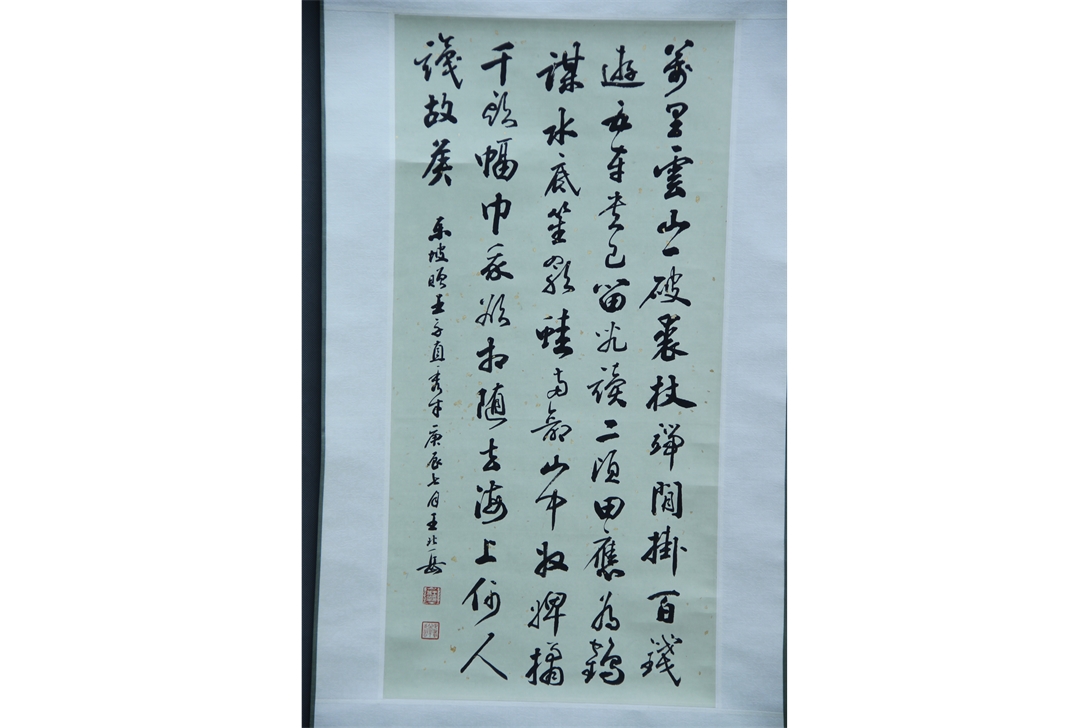 萬里雲山一破裘杖端閒掛百錢
遊五車書已留兒讀二頃田應為鶴
謀水底笙歌蛙兩部山中奴婢橘
千頭幅巾我欲相随去海上何人
識故侯
東坡贈王子直秀才庚辰七月王北岳